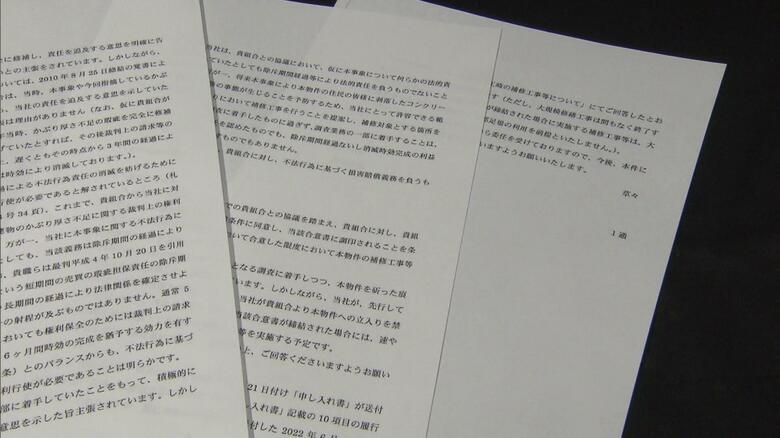 に修補し、責任を追及する意思を明確に告
いとの主張をされています。しかしながら、
いては、2010年8月25日締結の覚書によ
合は、当時、本事象や今回指摘しているかぶ
、当社の責任を追及する意思を示していた
張は理由がありません（なお、仮に貴組合が
年当時、かぶり厚さ不足の瑕疵を完全に修補
げていたとすれば、その後裁判上の請求等の
上、遅くともその時点から3年間の経過によ
は時効により消滅しております。）。
過による不法行為責任の消滅を妨げるために
行使が必要であると解されているところ（札
号34頁）、これまで、貴組合から当社に対
建物のかぶり厚さ不足に関する裁判上の権利
万が一、当社に本事象に関する不法行為に
としても、当該義務は除斥期間の経過により
、貴職らは最判平成4年10月20日を引用
という短期間の売買の瑕疵担保責任の除斥期
の長期間の経過により法律関係を確定させよ
の射程が及ぶものではありません。通常5
おいても権利保全のためには裁判上の請求
6ヶ月間時効の完成を猶予する効力を有す
条）とのバランスからも、不法行為に基づ
利行使が必要であることは明らかです。
部に着手していたことをもって、積極的に
意思を示した旨主張されています。しかし
当社は、貴組合との協議において、仮に本事象について何らかの法的責
ていたとしても除斥期間経過等により法的責任を負うものでないこと
が一、将来本事象により本物件の住民の皆様に剥落したコンクリー
の事態が生じることを予防するため、当社にとって許容できる範
において補修工事を行うことを提案し、補修対象とする箇所を
査に着手したものに過ぎず、調査業務の一部に着手することは、
を認めたものでも、除斥期間経過ないし消滅時効完成の利益
ものでもありません。
貴組合に対し、不法行為に基づく損害賠償義務を負うも
での貴組合との協議を踏まえ、貴組合に対し、貴組
条件に同意し、当該合意書に調印されることを条
いて合意した限度において本物件の補修工事等
となる調査に着手しつつ、本物件を斫った痕
います。しかしながら、当社が、先行して
当社が貴組合より本物件への立入りを禁
当該合意書が締結された場合には、速や
等を実施する予定です。
上、ご回答くださいますようお願い
21日付け「申し入れ書」が送付
入れ書」記載の10項目の履行
付した2022年6月
の補修工事等について」にてご回答したとお
す（ただし、大規模修繕工事は間もなく終了す
が締結された場合に実施する補修工事等は、大
足場の利用を前提といたしません。）。
ら委任を受けておりますので、今後、本件に
いますようお願いいたします。
草々
1通